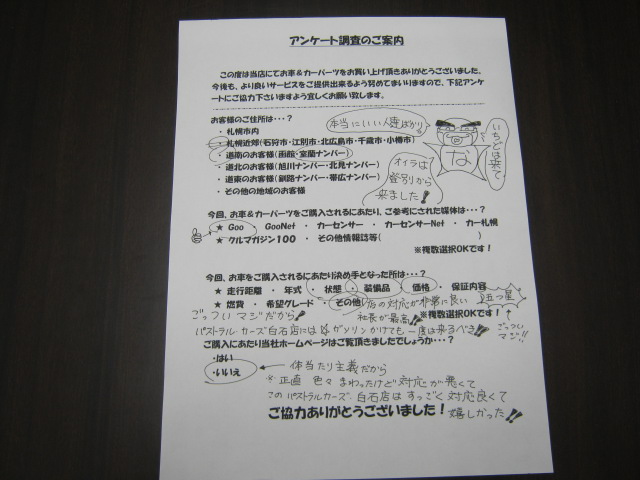 アンケート調査のご案内
この度は当店にてお車＆カーパーツをお買い上げ頂きありがとうございました。
今後も、より良いサービスをご提供出来るよう努めてまいりますので、下記アンケ
ートにご協力下さいますよう宜しくお願い致します。
お客様のご住所は・・・？
・札幌市内
・札幌近郊(石狩市・江別市・北広島市・千歳市・小樽市)
・道南のお客様(函館・室蘭ナンバー)
・道北のお客様(旭川ナンバー・北見ナンバー)
・道東のお客様(釧路ナンバー・帯広ナンバー)
・その他の地域のお客様
本当にいい人達ばかり。
オイラは
登別から
来ました!
な
いちどは来て
今回、お車＆カーパーツをご購入されるにあたり、ご参考にされた媒体は・・・？
★ Goo ・ GooNet ・ カーセンサー ・ カーセンサーNet ・ カー札幌
★ クルマガジン100 ・ その他情報誌等( )
※複数選択OKです！
今回、お車をご購入されるにあたり決め手となった所は・・・？
★ 走行距離 ・ 年式 ・ 状態 ・ 装備品 ・ 価格 ・ 保証内容
★ 燃費 ・ 希望グレード ・ その他 店の対応が非常に良い
五つ星
ごっつい マジだから!! 社長が最高!! ※複数選択OKです！
パストラルカーズ白石店には ガソリンかけても一度は来るべき!!
ごっつい
マジ!!
ご購入にあたり当社ホームページはご覧頂きましたでしょうか・・・？
・はい
・いいえ 体当たり主義だから
※ 正直 色々まわったけど対応が悪くて
このパストラルカーズ、白石店は すっごく対応良くて
ご協力ありがとうございました！ 嬉しかった!!